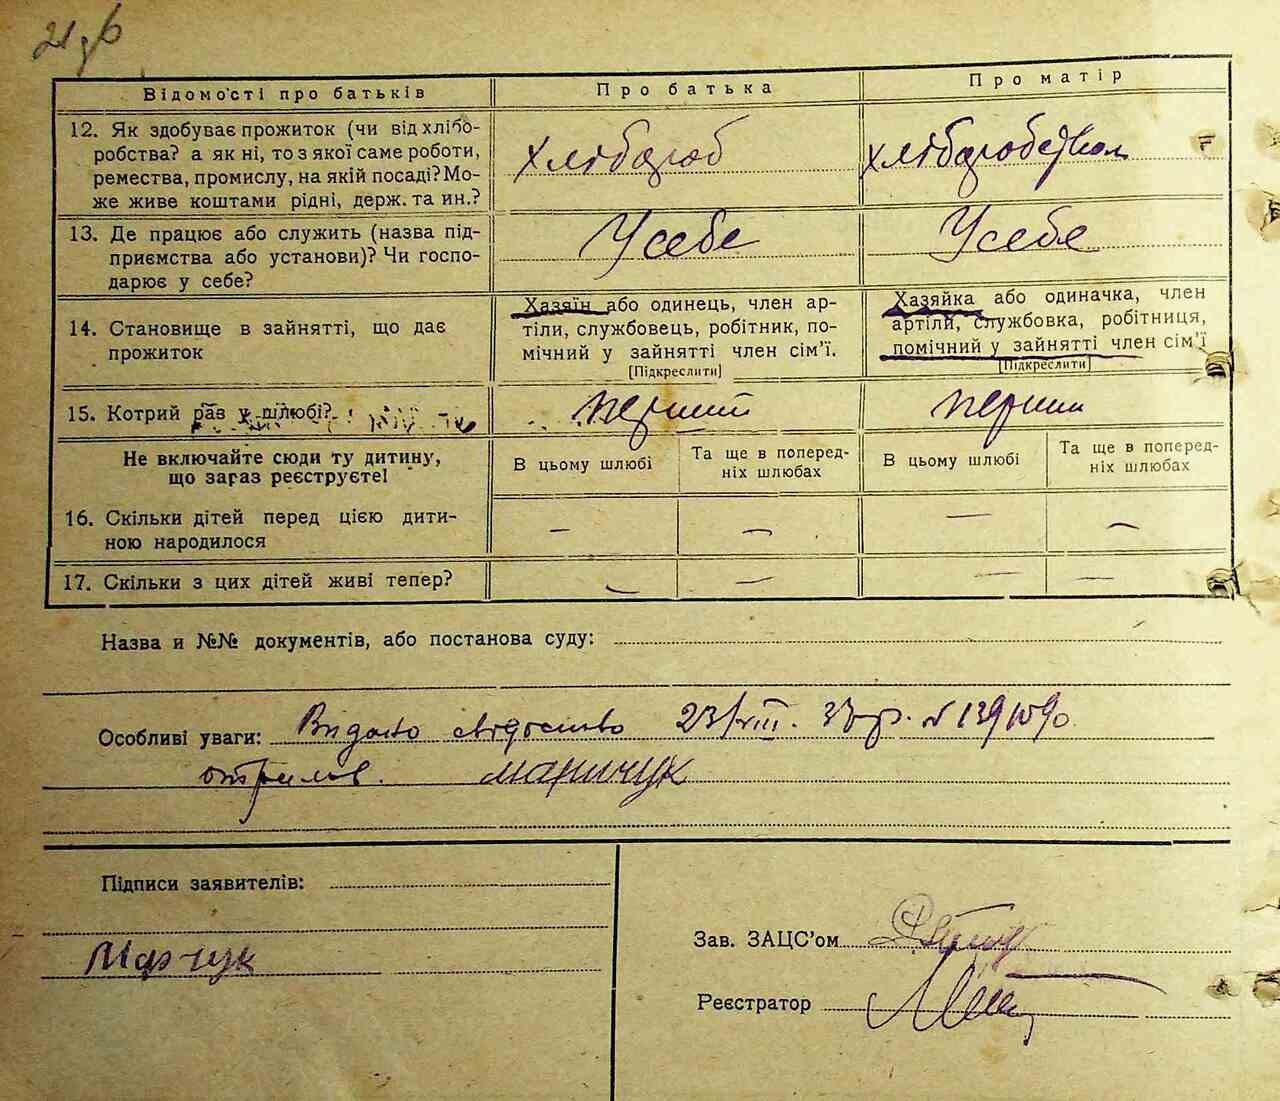 Відомості про батьків
Про батька
Про матір
12. Як здобуває прожиток (чи від хлібо-
робства? а як ні, то з якої саме роботи,
ремества, промислу, на якій посаді? Мо-
же живе коштами рідні, держ. та ин.?
хлібороб
хліборобством
13. Де працює або служить (назва під-
приємства або установи)? Чи госпо-
дарює у себе?
У себе
У себе
14. Становище в зайнятті, що дає
прожиток
Хазяїн або одинець, член ар-
тіли, службовець, робітник, по-
мічний у зайнятті член сім'ї.
[Підкреслити]
Хазяйка або одиначка, член
артіли, службовка, робітниця,
помічний у зайнятті член сім'ї
[Підкреслити]
15. Котрий раз у шлюбі?
перший
перший
Не включайте сюди ту дитину,
що зараз реєструєте!
В цьому шлюбі
Та ще в поперед-
ніх шлюбах
В цьому шлюбі
Та ще в поперед-
ніх шлюбах
16. Скільки дітей перед цією дити-
ною народилося
— — — —
17. Скільки з цих дітей живі тепер?
— — — —
Назва и №№ документів, або постанова суду:
Особливі уваги: Видано свідоцтво 23/VIII. 33 р. №
Марчук
Підписи заявителів:
Марчук
Зав. ЗАЦС'ом
Реєстратор